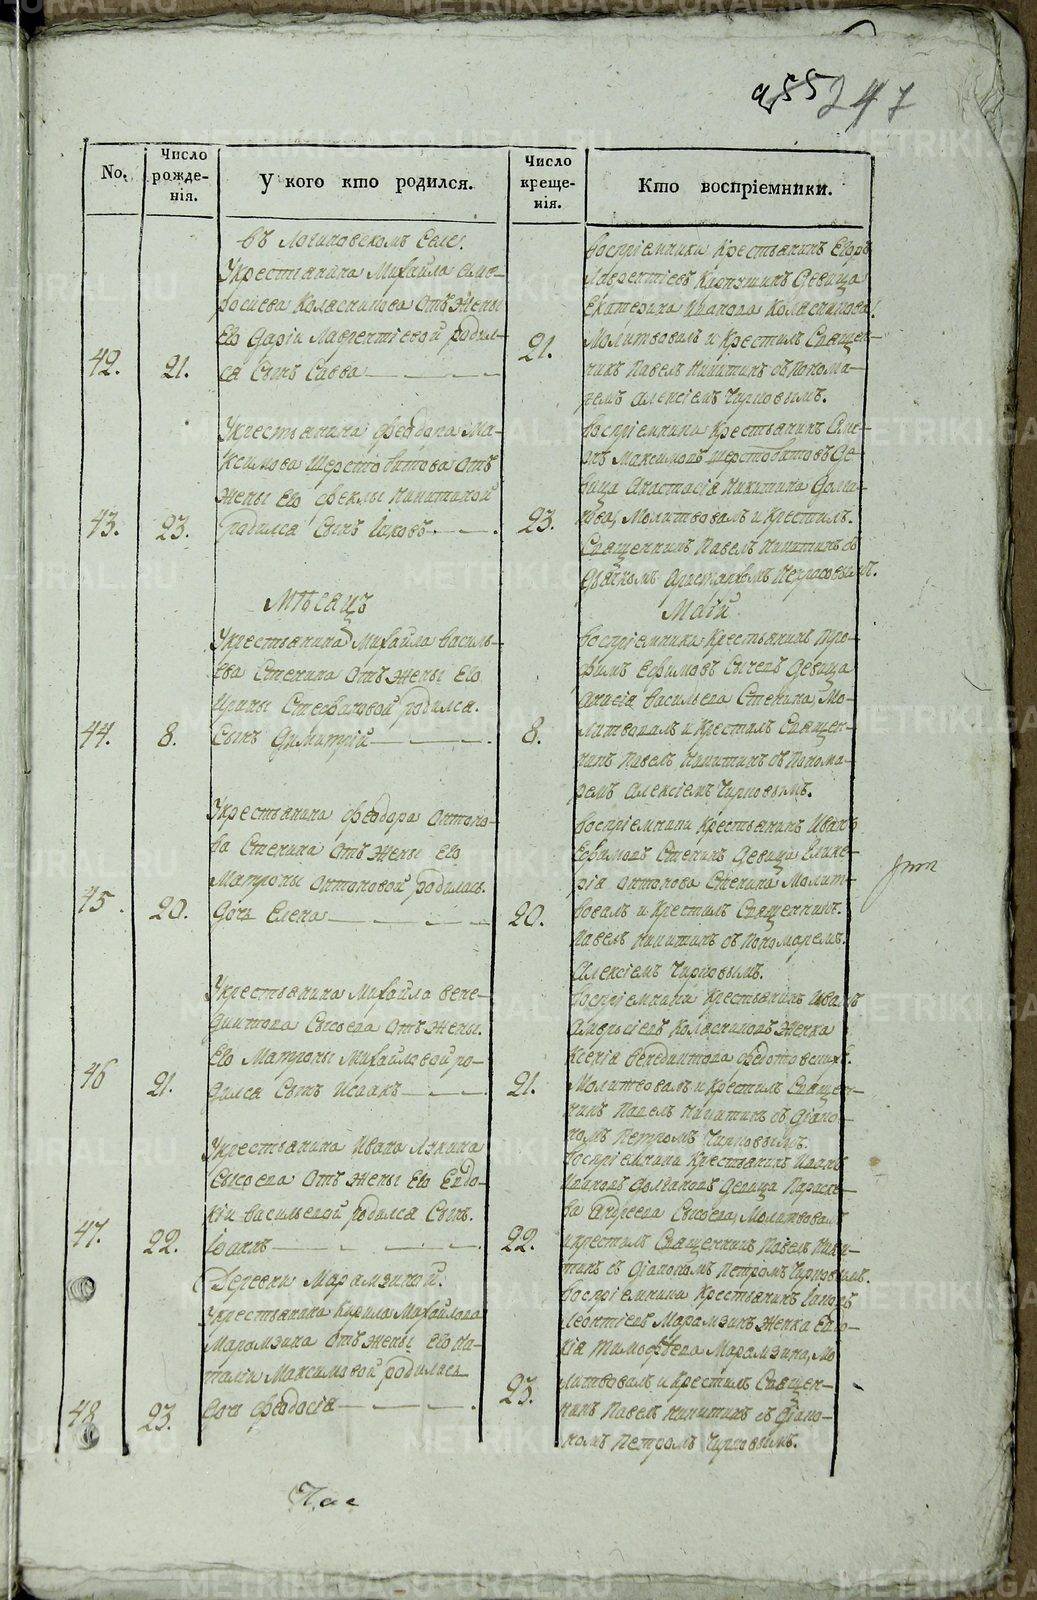 955 247
No.
Число рожде-
нія.
У кого кто родился.
Число креще-
нія.
Кто воспріемники.
въ Логиновскомъ Селе.
У крестьянина Михайла
Колясникова отъ жены
Его Дарьи Лаврентіевой родил-
42. 21. ся Сынъ Савва
21.
воспріемники крестьянинъ Егоръ
Лаврентіевъ девица
Екатерина Иванова Колясникова.
Молитвовалъ и Крестилъ Священ-
никъ Павелъ Никитинъ съ Понома-
ремъ Алексіемъ Чирковымъ.
У крестьянина Феодора Ма-
ксимова Шерстобитова отъ
жены Его Феклы Никитиной
43. 23. родился Сынъ Іаковъ
23.
воспріемники Крестьянинъ
Максимовъ Шерстобитовъ де-
вица Анастасія Никитина
Молитвовалъ и Крестилъ.
Священникъ Павелъ Никитинъ съ
Дьячкомъ Аристархомъ Некрасовымъ.
Мѣсяцъ
Маій
У крестьянина Михайла василь-
ева Стенина отъ жены Его
Ирины Стефановой родился.
44. 8. Сынъ Димитрій
8.
воспріемники Крестьянинъ Тро-
фимъ Ефимовъ Сычевъ девица
Анисія васильева Стенина, Мо-
литвовалъ и Крестилъ Священ-
никъ Павелъ Никитинъ съ Понома-
ремъ Алексіемъ Чирковымъ.
У крестьянина Феодора Антоно-
ва Стенина отъ жены Его
Матроны Антоновой родилась
45. 20. Дочь Елена
20.
воспріемники крестьянинъ Иванъ
Ефимовъ Стенинъ девица Глике-
рія Антонова Стенина Молит-
вовалъ и Крестилъ Священникъ.
Павелъ Никитинъ съ Пономаремъ.
Алексіемъ Чирковымъ.
У крестьянина Михайла вене-
диктова Сысоева отъ жены.
Его Матроны Михайловой ро-
46 21. дился Сынъ Исаакъ
21.
воспріемники Крестьянинъ Иванъ
Колясниковъ женка
Ксенія венедиктова
Молитвовалъ и Крестилъ Священ-
никъ Павелъ Никитинъ съ Діако-
номъ Петромъ Чирковымъ.
У крестьянина Ивана
Сысоева отъ жены Его Евдо-
кіи васильевой родился Сынъ.
47. 22. Іоаннъ
22.
воспріемники Крестьянинъ Иванъ
девица Параске-
ва Андреева Сысоева, Молитвовалъ
и крестилъ Священникъ Павелъ Ники-
тинъ съ Діакономъ Петромъ Чирковымъ.
Деревни Марамзиной.
У крестьянина Кирила Михайлова
Марамзина отъ жены Его На-
таліи Максимовой родилась
48 23. Дочь Феодосія
23.
воспріемники Крестьянинъ
Леонтіевъ Марамзинъ женка Евдо-
кія Тимофеева Марамзина, Мо-
литвовалъ и Крестилъ Священ-
никъ Павелъ Никитинъ съ Діако-
номъ Петромъ Чирковымъ.